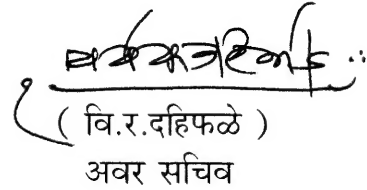 ( वि.र.दहिफळे )
अवर सचिव